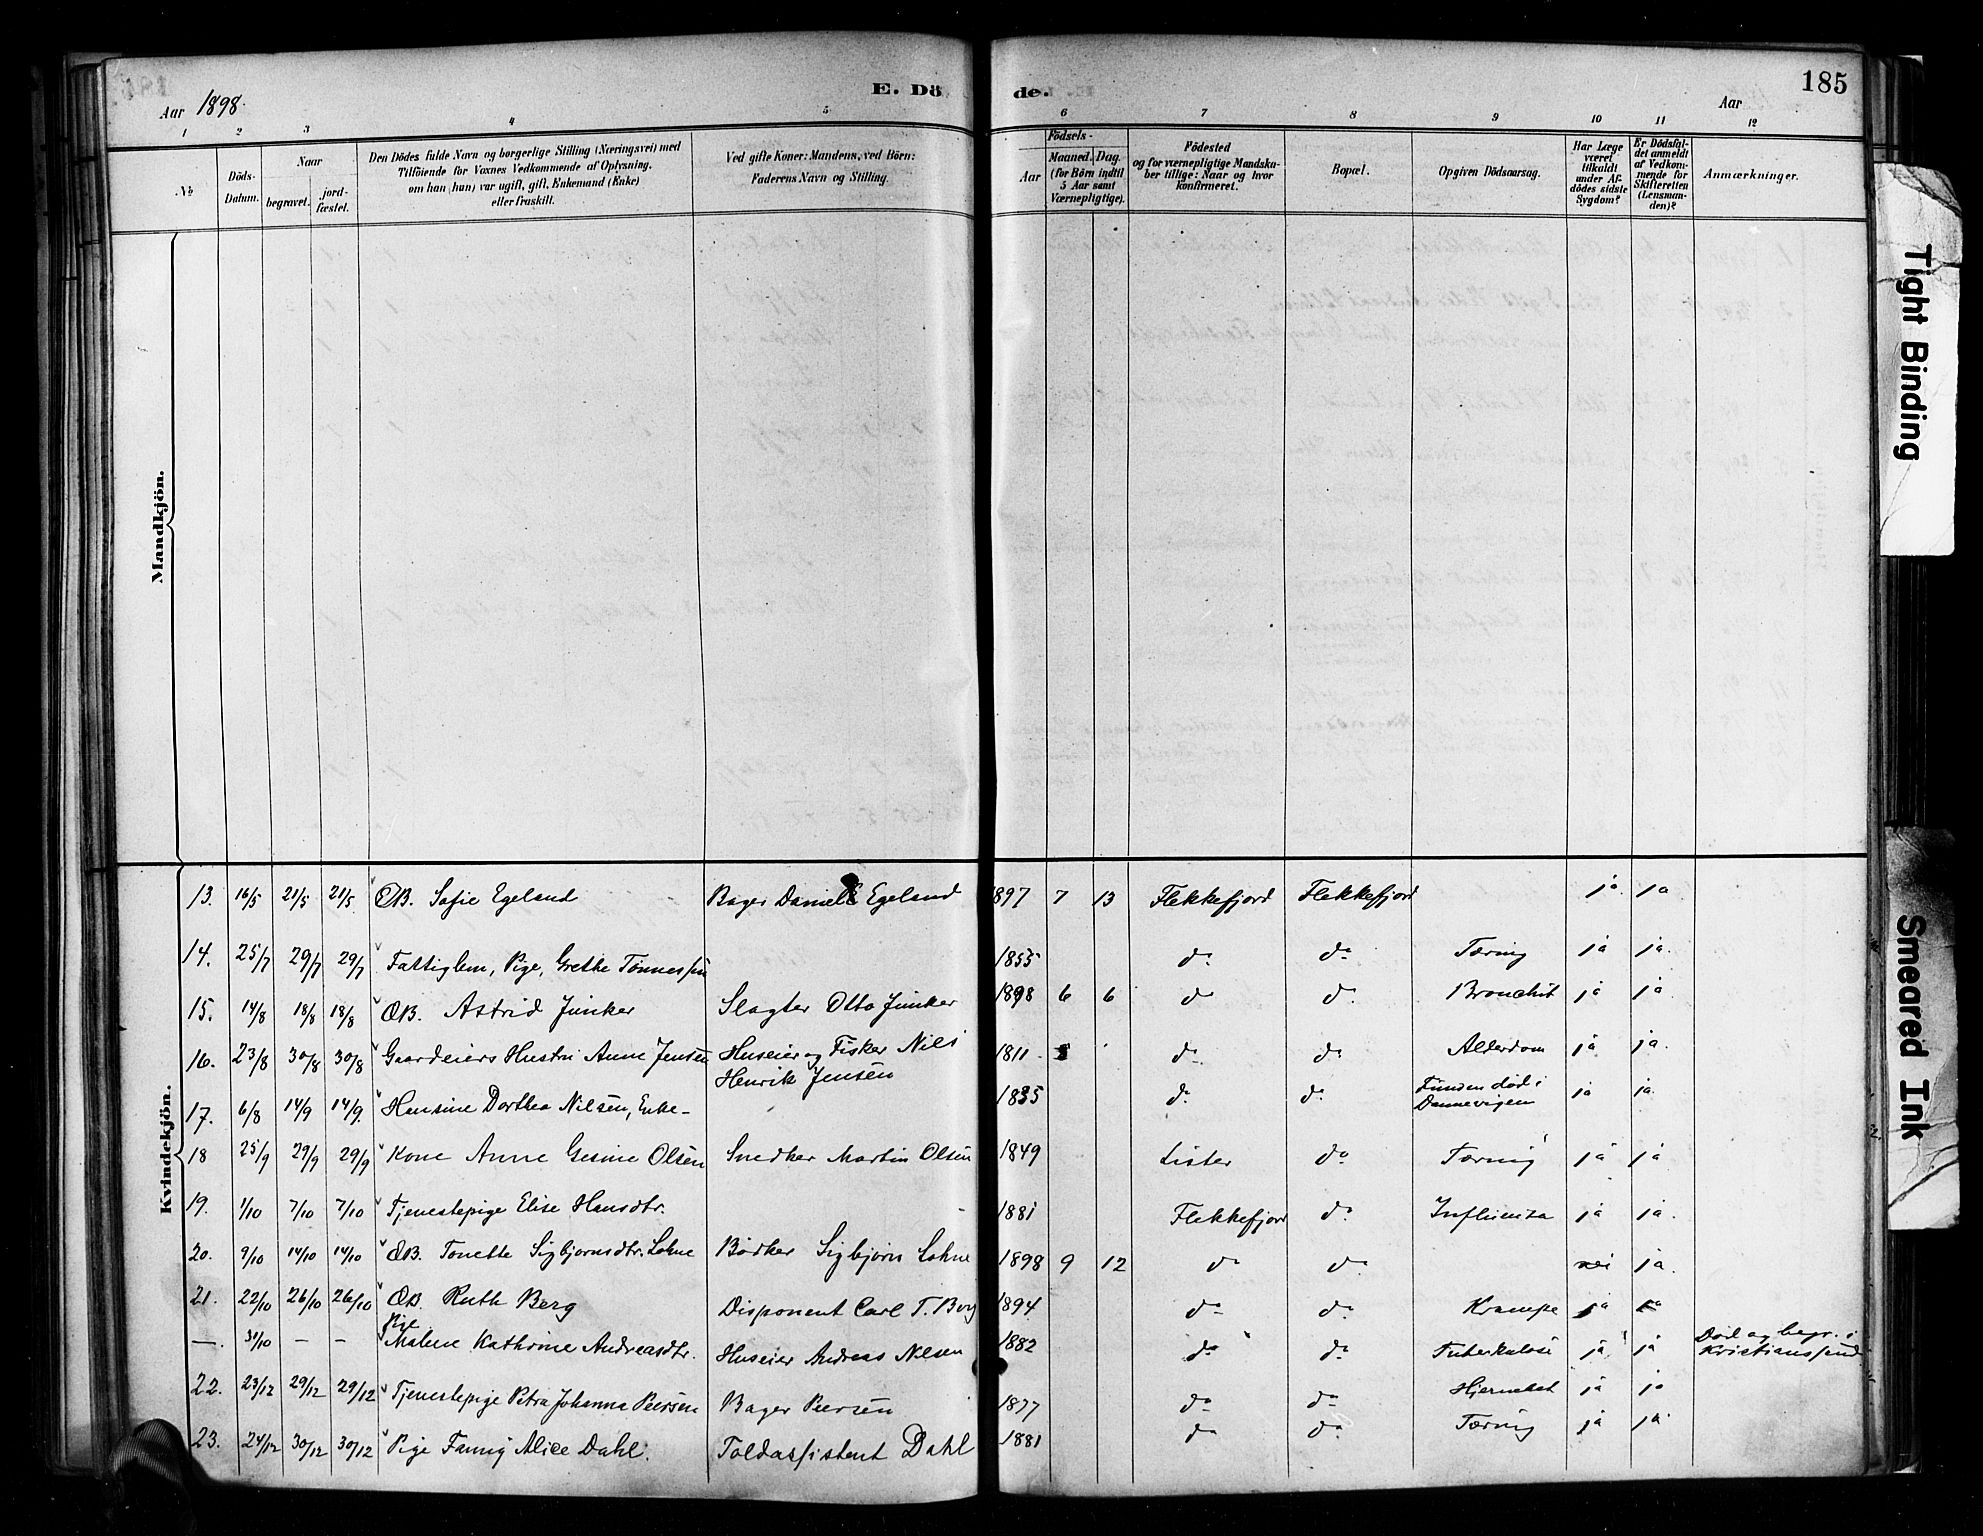 Aar 1898.
E. Dö
de.
Aar
185
1 2 3 4 5 6 7 8 9 10 11 12
No
Döds-Datum.
Naar
begravet.
jord-fæstet.
Den Dödes fulde Navn og borgerlige Stilling (Næringsvei) med
Tilföiende for Voxnes Vedkommende af Oplysning,
om han (hun) var ugift, gift, Enkemand (Enke)
eller fraskilt.
Ved gifte Koner: Mandens, ved Börn:
Faderens Navn og Stilling.
Födsels-
Aar
Maaned. Dag.
(for Börn indtil
5 Aar samt
Værnepligtige).
Födested
og for værnepligtige Mandska-
ber tillige: Naar og hvor
konfirmeret.
Bopæl.
Opgiven Dödsaarsag.
Har Læge
været
tilkaldt
under Af-
dödes sidste
Sygdom?
Er Dödsfal-
det anmeldt
af Vedkom-
mende for
Skifteretten
(Lensman-
den)?
Anmærkninger.
Mandkjön.
Kvindekjön.
13. 16/5 21/5 21/5 ÆB. Sofie Egeland Bager Daniel E Egeland 1897 7 13 Flekkefjord Flekkefjord ja ja
14. 25/7 29/7 29/7 Fattiglem, Pige, Grethe Tönnessen 1855 do do Tæring ja ja
15. 14/8 18/8 18/8 ÆB. Astrid Junker Slagter Otto Junker 1898 6 6 do do Bronchit ja ja
16. 23/8 30/8 30/8 Gaardeiers Hustru Anne Jensen Huseier og Fisker Nils
Henrik Jensen 1811 do do Alderdom ja ja.
17. 6/8 14/9 14/9. Hansine Dorthea Nilsen, Enke- 1835 do do Funden död i
Dannevigen ja ja.
18 25/9 29/9 29/9 Kone Anne Gesine Olsen Snedker Martin Olsen 1849 Lister do Tæring ja ja
19. 1/10 7/10 7/10 Tjenestepige Elise Hansdtr. 1881 Flekkefjord do Influenza ja ja.
20. 9/10 14/10 14/10 ÆB. Tonette Sigbjørnsdtr. Lohne Bödker Sigbjørn Lohne 1898 9 12 do do nei ja.
21. 22/10 26/10 26/10 ÆB. Ruth Berg Disponent Carl T. Berg 1894 do do Krampe ja ja
— 31/10 — — Pige Malene Kathrine Andreasdtr. Huseier Andreas Nilsen 1882 do do Tuberkulose ja ja Död og begr. i
Kristianssand
22. 23/12 29/12 29/12 Tjenestepige Petra Johanna Peersen Bager Peersen 1877 do do Hjernebet ja ja
23. 24/12 30/12 30/12 Pige Fanny Alice Dahl. Toldassistent Dahl 1881 do do Tæring ja ja
Tight Binding
Smeared Ink